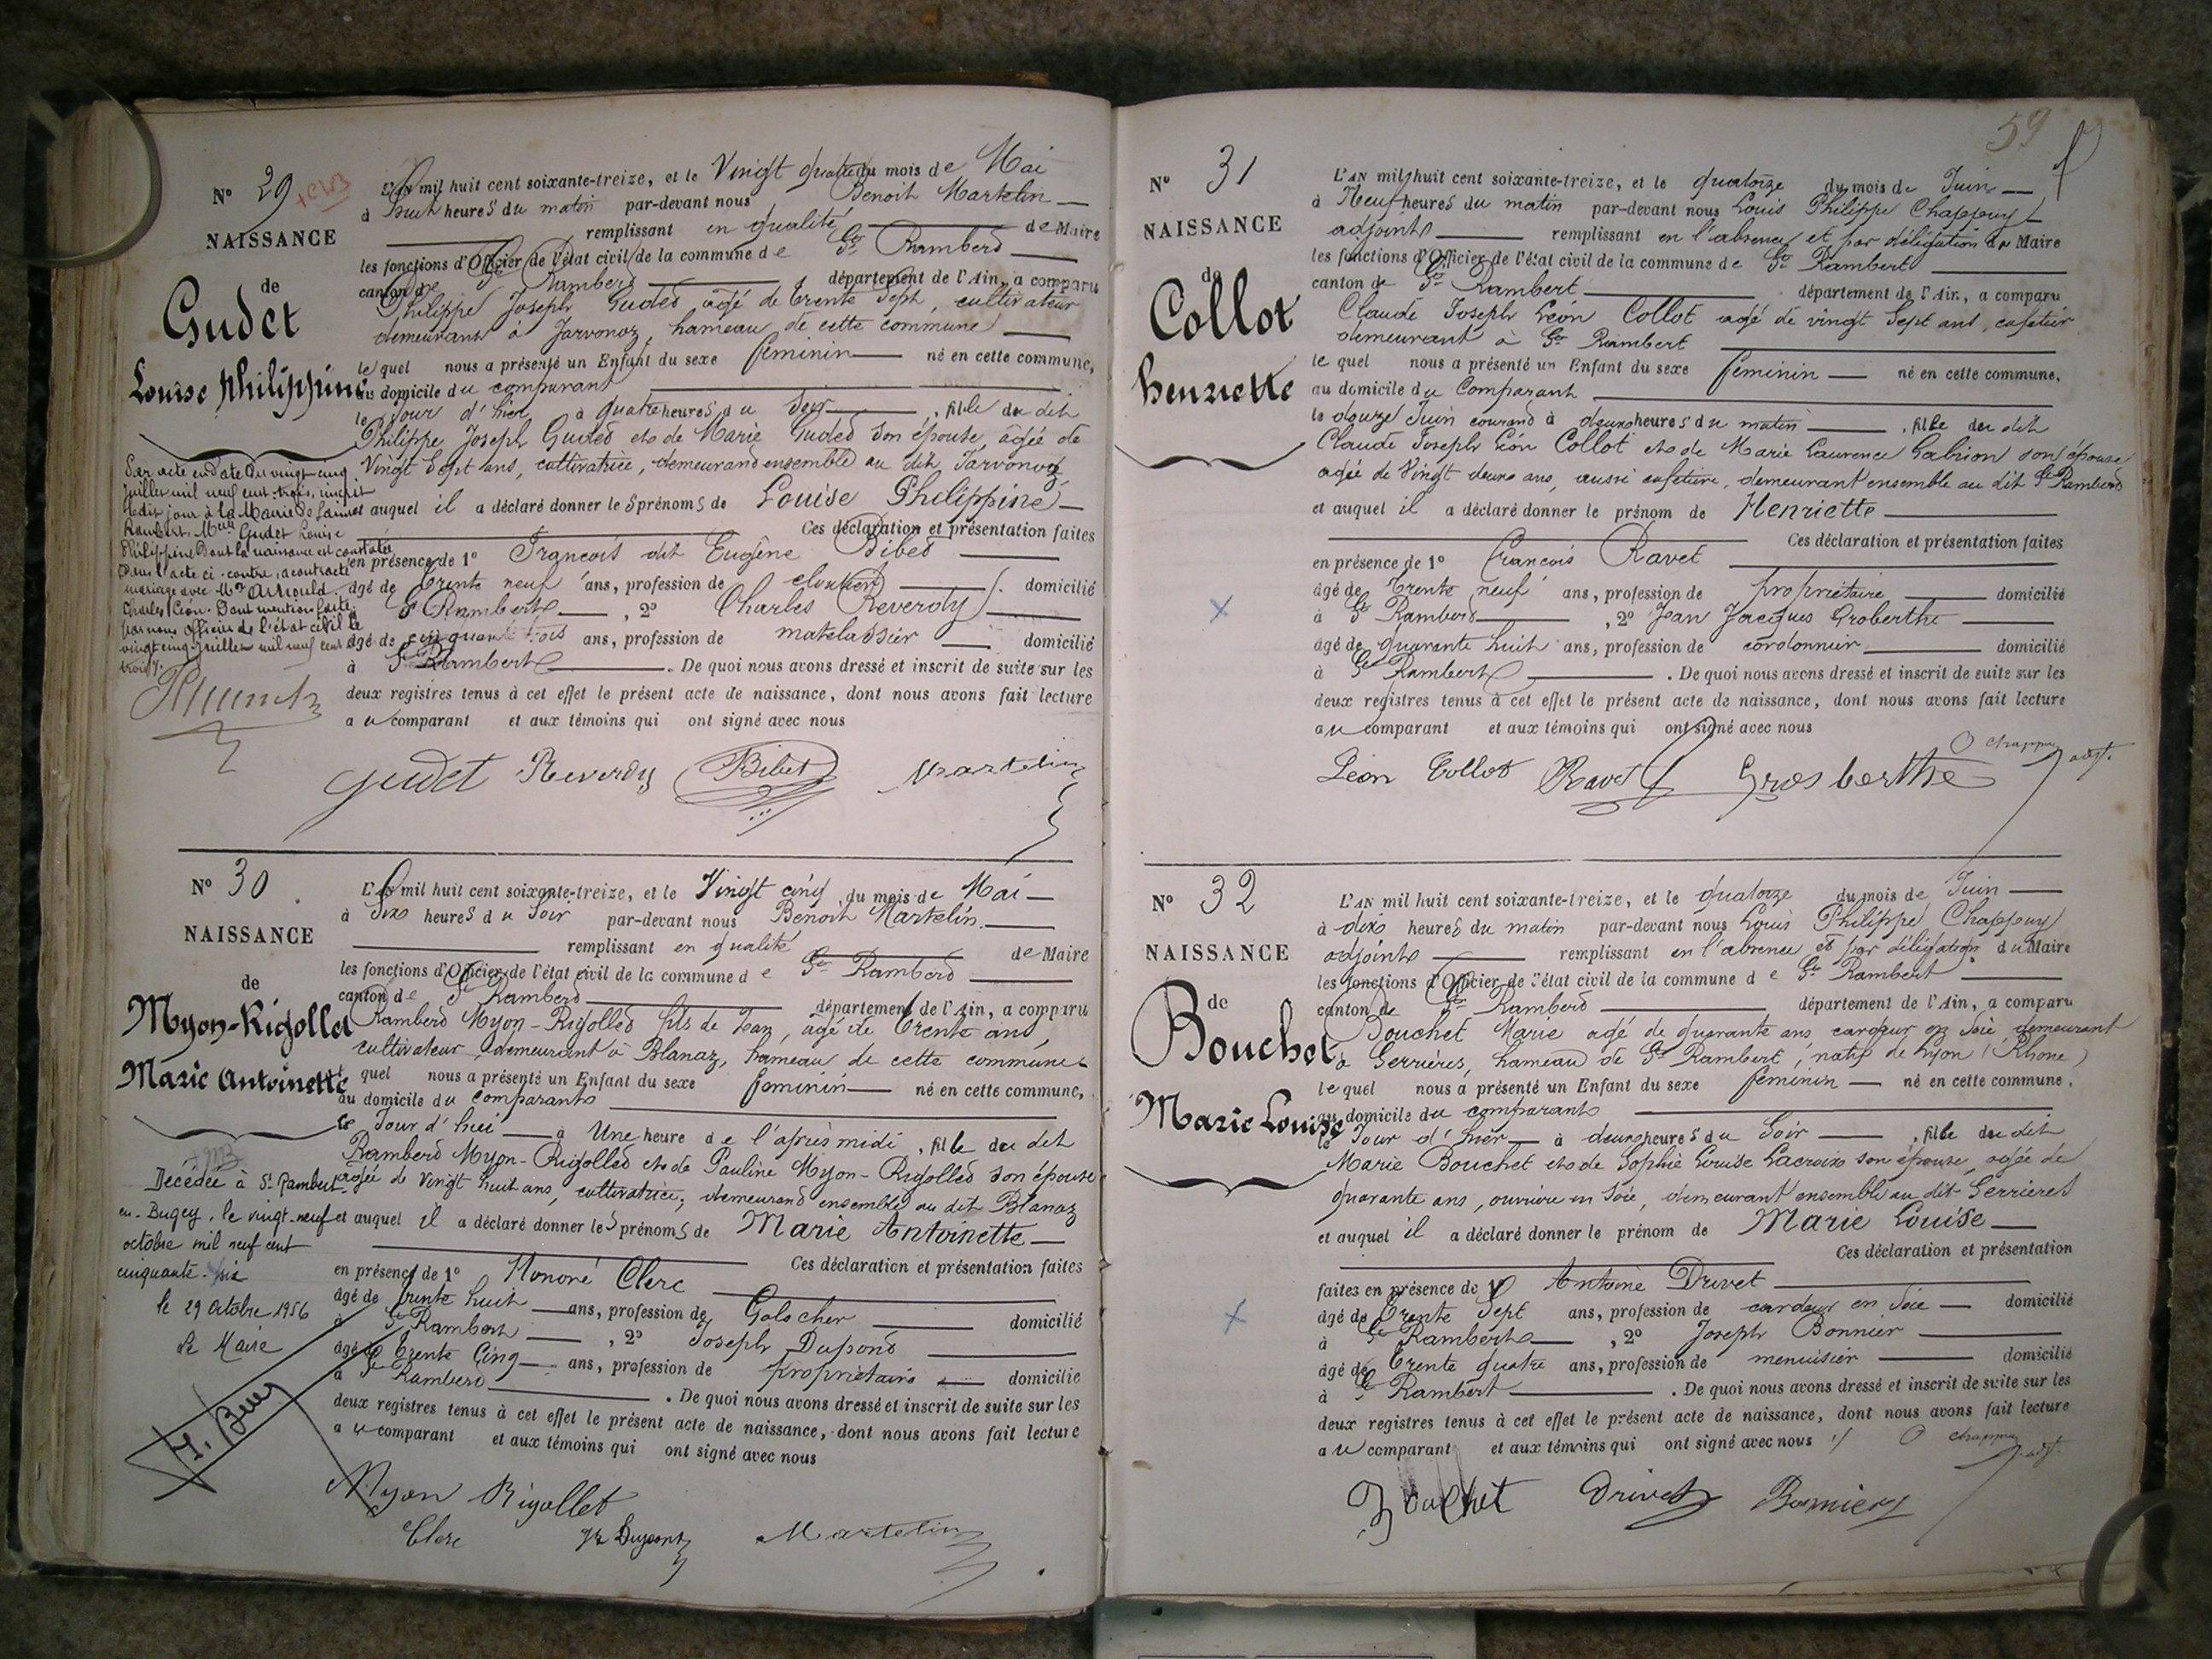 N° 29
NAISSANCE
de
Gudet
Louise Philippine
Par acte en date du vingt cinq
juillet mil neuf cent trois, inscrit
ledit jour à la Mairie de Saint
Rambert, Melle Gudet Louise
Philippine dont la naissance est constatée
dans l'acte ci-contre, a contracté
mariage avec Mr Arnould
Charles Léon. Dont mention faite
par nous officier de l'état civil le
vingt cinq juillet mil neuf cent
trois.
L'AN mil huit cent soixante-treize, et le Vingt quatre du mois de Mai
à huit heures du matin par-devant nous Benoit Martelin
remplissant en qualité de Maire
les fonctions d'Officier de l'état civil de la commune de St Rambert
canton de St Rambert département de l'Ain, a comparu
Philippe Joseph Gudet âgé de trente sept, cultivateur
demeurant à Javornoz, hameau de cette commune
lequel nous a présenté un Enfant du sexe feminin né en cette commune,
au domicile du comparant
le jour d'hier à quatre heures du soir, fille du dit
Philippe Joseph Gudet et de Marie Gudet son épouse, âgée de
Vingt sept ans, cultivatrice, demeurant ensemble au dit Javornoz
auquel il a déclaré donner les prénoms de Louise Philippine
Ces déclaration et présentation faites
en présence de 1° François dit Eugène Bibet
âgé de trente neuf ans, profession de domicilié
à St Rambert, 2° Charles Reverdy
âgé de cinquante trois ans, profession de matelassier domicilié
à St Rambert. De quoi nous avons dressé et inscrit de suite sur les
deux registres tenus à cet effet le présent acte de naissance, dont nous avons fait lecture
au comparant et aux témoins qui ont signé avec nous
Gudet Reverdy Bibet Martelin
N° 30
NAISSANCE
de
Myon-Rigollet
Marie Antoinette
Décédée à St Rambert
en-Bugey, le vingt-neuf
octobre mil neuf cent
cinquante-six
le 29 Octobre 1956
Le Maire
L'AN mil huit cent soixante-treize, et le Vingt cinq du mois de Mai
à six heures du Soir par-devant nous Benoit Martelin
remplissant en qualité de Maire
les fonctions d'Officier de l'état civil de la commune de St Rambert
canton de St Rambert département de l'Ain, a comparu
Rambert Myon-Rigollet fils de Jean, âgé de trente ans,
cultivateur demeurant à Blanaz, hameau de cette commune
lequel nous a présenté un Enfant du sexe feminin né en cette commune,
au domicile du comparant
le Jour d'hui à Une heure de l'après midi, fille du dit
Rambert Myon-Rigollet et de Pauline Myon-Rigollet son épouse
âgée de vingt huit ans, cultivatrice, demeurant ensemble au dit Blanaz
et auquel il a déclaré donner les prénoms de Marie Antoinette
Ces déclaration et présentation faites
en présence de 1° Honoré Clerc
âgé de trente huit ans, profession de Galocher domicilié
à St Rambert, 2° Joseph Dupont
âgé de trente Cinq ans, profession de propriétaire domicilié
à St Rambert. De quoi nous avons dressé et inscrit de suite sur les
deux registres tenus à cet effet le présent acte de naissance, dont nous avons fait lecture
au comparant et aux témoins qui ont signé avec nous
Myon Rigollet
Clerc Jh Dupont Martelin
59
N° 31
NAISSANCE
de
Collot
Henriette
L'AN mil huit cent soixante-treize, et le quatorze du mois de Juin
à Neuf heures du matin par-devant nous Louis Philippe Chappuy
adjoint remplissant en l'absence et par délégation du Maire
les fonctions d'Officier de l'état civil de la commune de St Rambert
canton de St Rambert département de l'Ain, a comparu
Claude Joseph Léon Collot agé de vingt sept ans, cafetier
demeurant à St Rambert
lequel nous a présenté un Enfant du sexe feminin né en cette commune,
au domicile du Comparant
le douze Juin courant à deux heures du matin, fille du dit
Claude Joseph Léon Collot et de Marie Laurence son épouse
agée de Vingt deux ans, aussi cafetière, demeurant ensemble au dit St Rambert
et auquel il a déclaré donner le prénom de Henriette
Ces déclaration et présentation faites
en présence de 1° François Ravet
âgé de trente neuf ans, profession de propriétaire domicilié
à St Rambert, 2° Jean Jacques Groberthe
âgé de quarante huit ans, profession de cordonnier domicilié
à St Rambert. De quoi nous avons dressé et inscrit de suite sur les
deux registres tenus à cet effet le présent acte de naissance, dont nous avons fait lecture
au comparant et aux témoins qui ont signé avec nous
Léon Collot Ravet Grosberthe Chappuy adjt.
N° 32
NAISSANCE
de
Bouchet
Marie Louise
L'AN mil huit cent soixante-treize, et le quatorze du mois de Juin
à dix heures du matin par-devant nous Louis Philippe Chappuy
adjoint remplissant en l'absence et par délégation du Maire
les fonctions d'Officier de l'état civil de la commune de St Rambert
canton de St Rambert département de l'Ain, a comparu
Bouchet Marie agé de quarante ans cardeur en soie demeurant
à Serrières, hameau de St Rambert, natif de Lyon (Rhone)
lequel nous a présenté un Enfant du sexe feminin né en cette commune,
au domicile du comparant
le Jour d'hier à deux heures du Soir, fille du dit
Marie Bouchet et de Sophie Louise Lacroix son épouse, agée de
quarante ans, ouvrière en soie, demeurant ensemble au dit Serrieres
et auquel il a déclaré donner le prénom de Marie Louise
Ces déclaration et présentation
faites en présence de 1° Antoine Drivet
âgé de trente sept ans, profession de cardeur en soie domicilié
à St Rambert, 2° Joseph Bonnier
âgé de trente quatre ans, profession de menuisier domicilié
à St Rambert. De quoi nous avons dressé et inscrit de suite sur les
deux registres tenus à cet effet le présent acte de naissance, dont nous avons fait lecture
au comparant et aux témoins qui ont signé avec nous Chappuy adjt.
Bouchet Drivet Bonnier